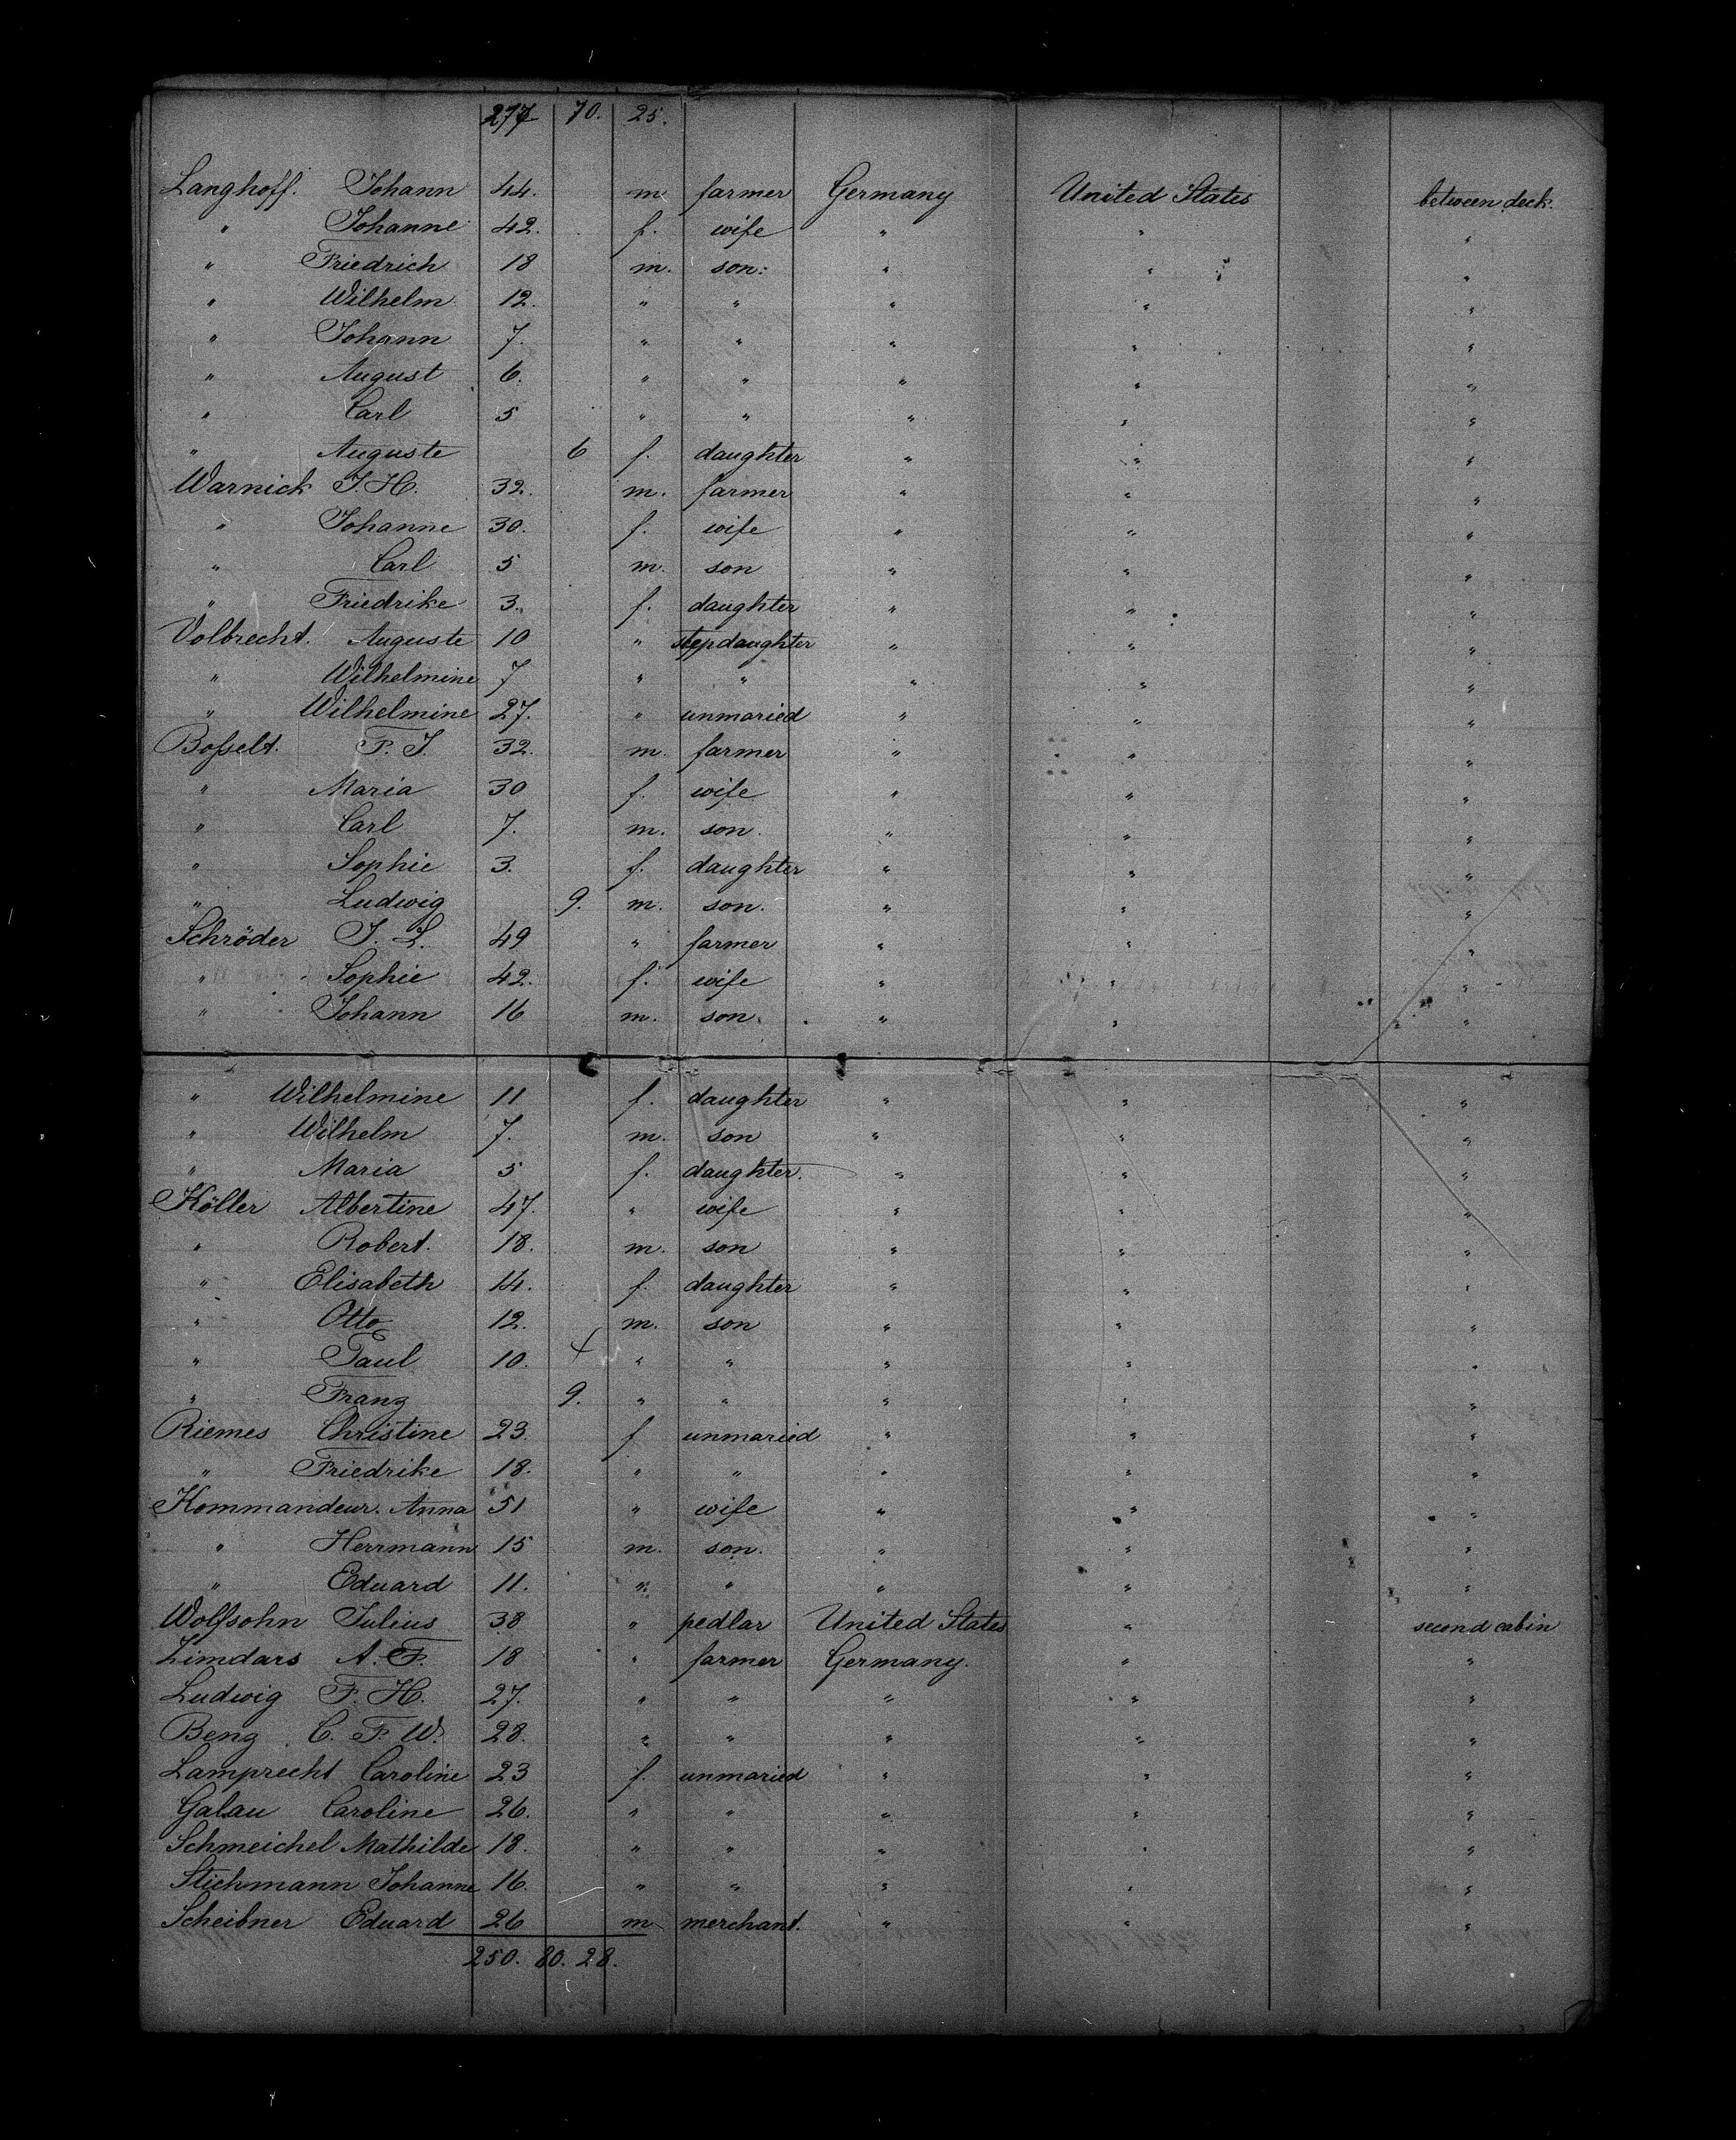 277 70. 25.
Langhoff. Johann 44. m. farmer Germany United States between deck.
" Johanne 42. f. wife " " "
" Friedrich 18 m. son: " " "
" Wilhelm 12. " " " " "
" Johann 7. " " " " "
" August 6. " " " " "
" Carl 5 " " " " "
" Auguste 6 f. daughter " " "
Warnick J. H. 32. m. farmer " " "
" Johanne 30. f. wife " " "
" Carl 5 m. son " " "
" Friedrike 3. f. daughter " " "
Volbrecht. Auguste 10 " stepdaughter " " "
" Wilhelmine 7 " " " " "
" Wilhelmine 27. " unmaried " " "
Boßelt. F. J. 32. m. farmer " " "
" Maria 30 f. wife " " "
" Carl 7. m. son. " " "
" Sophie 3. f. daughter " " "
" Ludwig 9. m. son. " " "
Schröder J. L. 49 " farmer " " "
" Sophie 42. f. wife " " "
" Johann 16 m. son. " " "
" Wilhelmine 11 f. daughter " " "
" Wilhelm 7. m. son " " "
" Maria 5 f. daughter. " " "
Köller Albertine 47. " wife " " "
" Robert. 18. m. son " " "
" Elisabeth 14. f. daughter " " "
" Otto 12. m. son " " "
" Paul 10. " " " " "
" Franz 9. " " " " "
Riemes Christine 23. f unmaried " " "
" Friedrike 18. " " " " "
Kommandeur. Anna 51 " wife " " "
" Herrmann 15 m. son. " " "
" Eduard 11. " " " " "
Wolfsohn Julius 38 " pedlar United States " second cabin
Zimdars A. F. 18 " farmer Germany. " "
Ludwig F. H. 27. " " " " "
Benz C. F. W. 28. " " " " "
Lamprecht Caroline 23 f. unmaried " " "
Galau Caroline 26. " " " " "
Schmeichel Mathilde 18. " " " " "
Stichmann Johanne 16. " " " " "
Scheibner Eduard 26 m merchant. " " "
250. 80. 28.